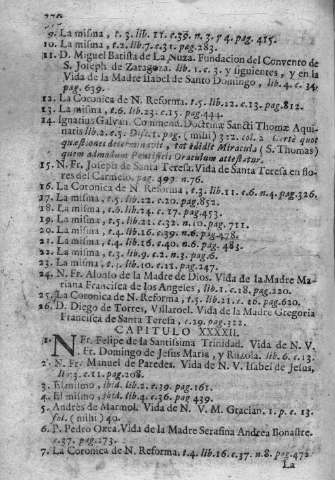 9. La misma, t. 3. lib. 11. c. 39. n. 3. y 4. pag. 415.
10. La misma, t. 2. lib. 7. c. 31. pag. 283.
11. D. Miguel Batista de La Nuza. Fundacion del Convento de
S. Joseph de Zaragoza. lib. 1. c. 3. y siguientes, y en la
Vida de la Madre Isabel de Santo Domingo, lib. 4. c. 34.
pag. 639.
12. La Coronica de N. Reforma. t. 5. lib. 22. c. 13. pag. 812.
13. La misma, t. 6. lib. 23. c. 15. pag. 444.
14. Ignatius Galvan. Commend. Doctrinæ Sancti Thomæ Aqui-
natis lib. 2. c. 3. Disc. 1. pag. (mihi) 312. col. 2. Certè quot
quæstiones determinavit, tot edidit Miracula (S. Thomas)
quem admodum Pontificis Oraculum attestatur.
15. N. Fr. Joseph de Santa Teresa. Vida de Santa Teresa en flo-
res del Carmelo. pag. 493. n. 76.
16. La Coronica de N. Reforma, t. 3. lib. 11. c. 6. n. 4. pag. 326.
17. La misma, t. 5. lib. 22. c. 20. pag. 852.
18. La misma, t. 6. lib. 24. c. 17. pag. 453.
19. La misma, t. 5. lib. 21. c. 32. n. 10. pag. 711.
20. La misma, t. 4. lib. 16. c. 39. n. 6. pag. 478.
21. La misma, t. 4. lib. 16. c. 40. n. 6. pag. 483.
22. La misma, t. 3. lib. 9. c. 2. n. 3. pag. 6.
23. La misma, t. lib. 10. c. 12. pag. 247.
24. N. Fr. Alonso de la Madre de Dios. Vida de la Madre Ma-
riana Francisca de los Angeles, lib. 1. c. 18. pag. 220.
25. La Coronica de N. Reforma, t. 5. lib. 21. c. 10. pag. 620.
26. D. Diego de Torres, Villaroel. Vida de la Madre Gregoria
Francisca de Santa Teresa, c. 29. pag. 322.
CAPITULO XXXXII.
1. N. Fr. Felipe de la Santissima Trinidad. Vida de N. V.
Fr. Domingo de Jesus Maria, y Ruzola. lib. 6. c. 13.
2. N. Fr. Manuel de Paredes. Vida de N. V. Isabel de Jesus,
lib. 3. c. 11. pag. 208.
3. El mismo, ibid. lib. 2. c. 39. pag. 161.
4. El mismo, ibid. lib. 4. c. 36. pag 439.
5. Andrès de Marmol. Vida de N. V. M. Gracian. 1. p. c. 13.
fol. (mihi) 40.
6. P. Pedro Orea. Vida de la Madre Serafina Andrea Bonastre.
c. 37. pag. 273.
7. La Coronica de N. Reforma. t. 4. lib. 16. c. 37. n. 8. pag. 472
La